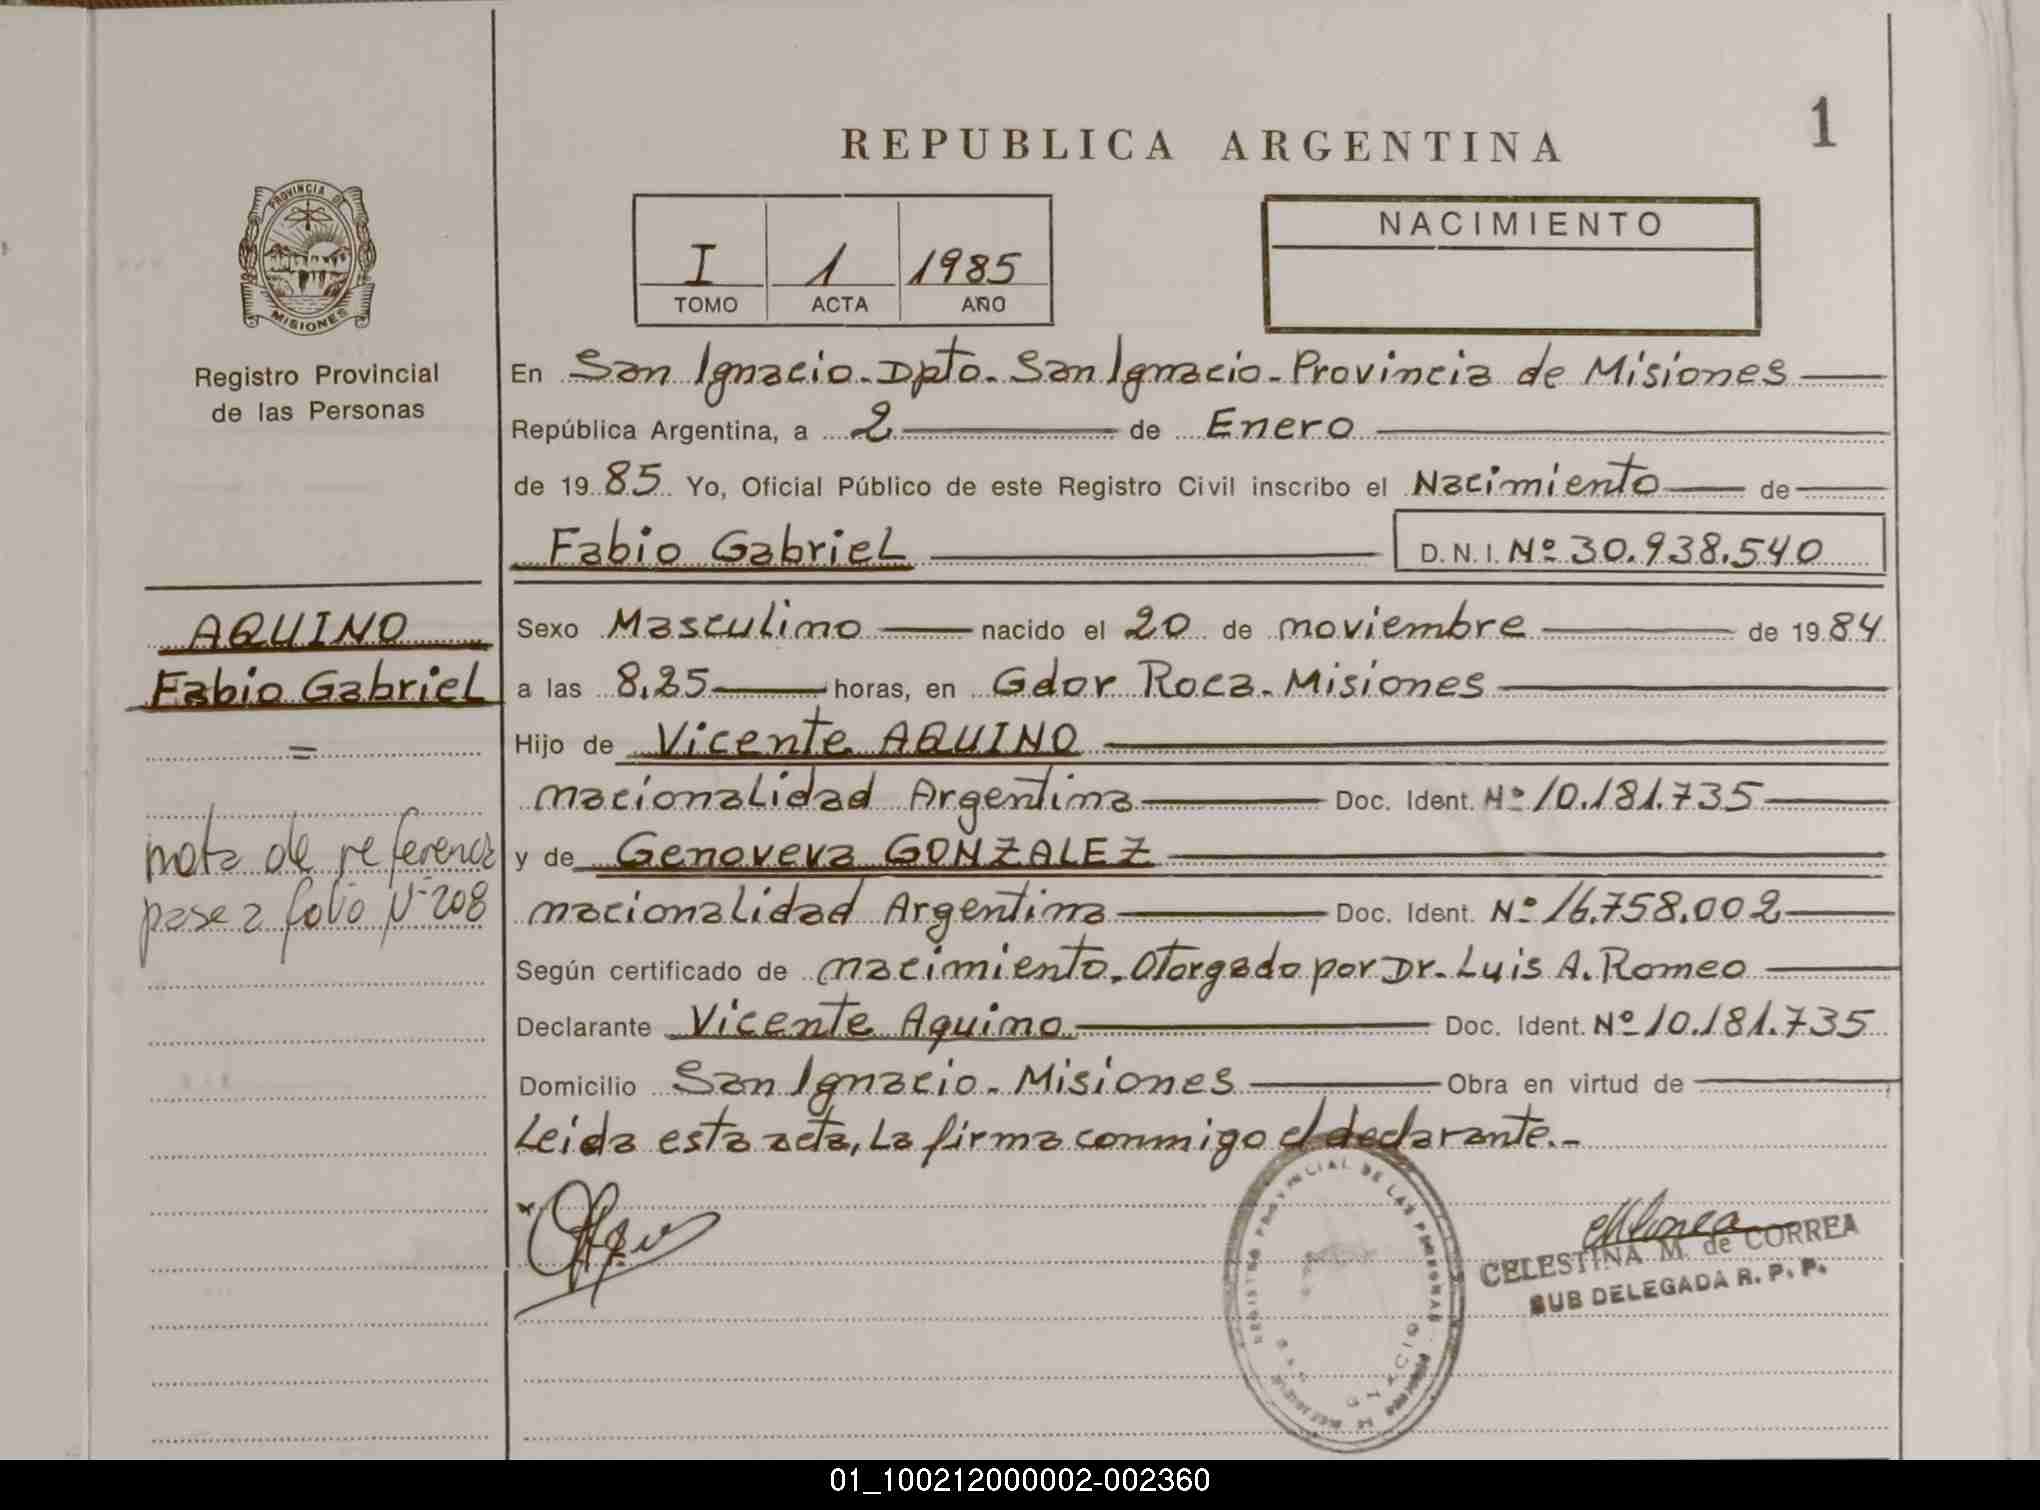 REPUBLICA ARGENTINA
1
PROVINCIA DE
MISIONES
Registro Provincial
de las Personas
I 1 1985
TOMO ACTA AÑO
NACIMIENTO
En San Ignacio - Dpto. San Ignacio - Provincia de Misiones
República Argentina, a 2 de Enero
de 1985 Yo, Oficial Público de este Registro Civil inscribo el Nacimiento de
Fabio Gabriel D.N.I. Nº 30.938.540
AQUINO
Fabio Gabriel
=
nota de referencia
pase a folio Nº 208
Sexo Masculino nacido el 20 de noviembre de 1984
a las 8,25 horas, en Gdor Roca - Misiones
Hijo de Vicente AQUINO
nacionalidad Argentina Doc. Ident. Nº 10.181.735
y de Genoveva GONZALEZ
nacionalidad Argentina Doc. Ident. Nº 16.758.002
Según certificado de nacimiento. Otorgado por Dr. Luis A. Romeo
Declarante Vicente Aquino Doc. Ident. Nº 10.181.735
Domicilio San Ignacio - Misiones Obra en virtud de
Leida esta acta, La firma conmigo el declarante.-
REGISTRO PROVINCIAL DE LAS PERSONAS
CELESTINA M. de CORREA
SUB DELEGADA R. P. P.
01_100212000002-002360